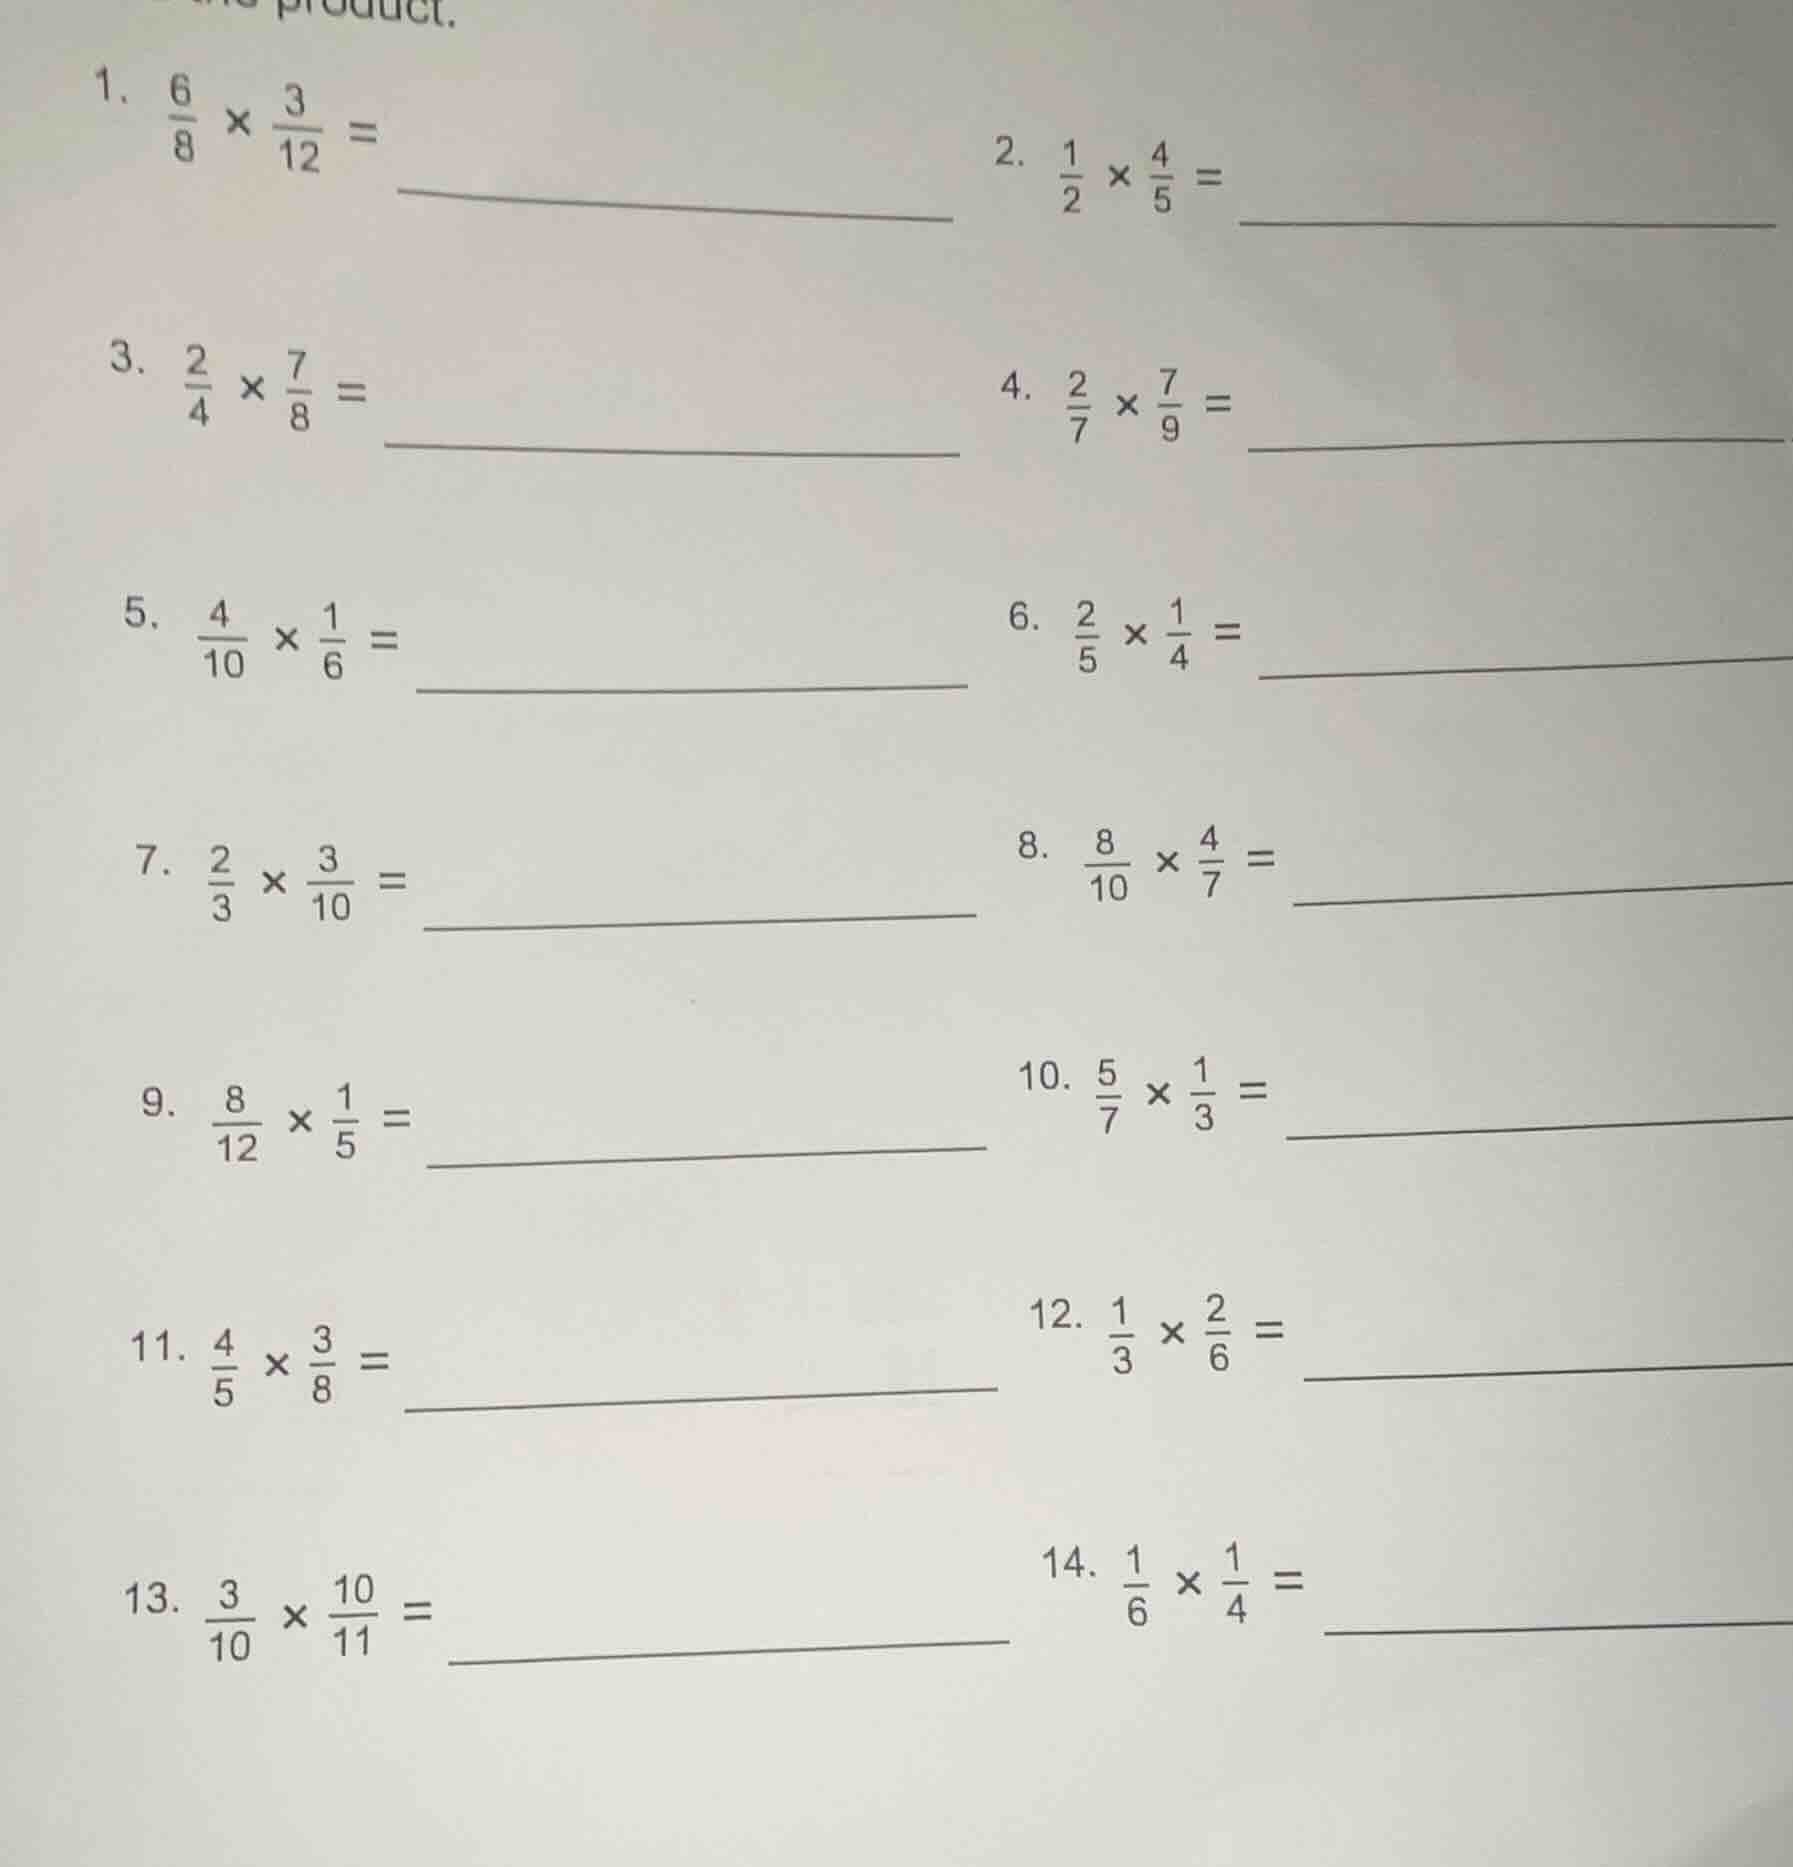 product.
1. 6/8 × 3/12 = ____
2. 1/2 × 4/5 = ____
3. 2/4 × 7/8 = ____
4. 2/7 × 7/9 = ____
5. 4/10 × 1/6 = ____
6. 2/5 × 1/4 = ____
7. 2/3 × 3/10 = ____
8. 8/10 × 4/7 = ____
9. 8/12 × 1/5 = ____
10. 5/7 × 1/3 = ____
11. 4/5 × 3/8 = ____
12. 1/3 × 2/6 = ____
13. 3/10 × 10/11 = ____
14. 1/6 × 1/4 = ____